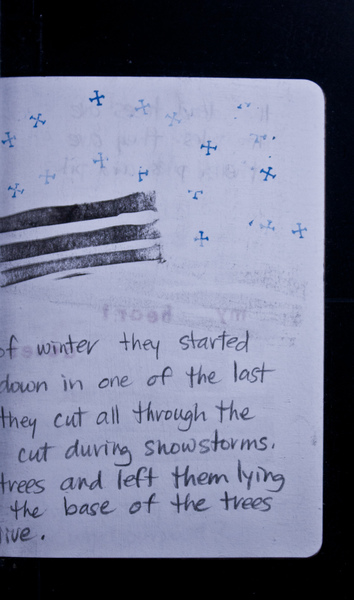 of winter they started
down in one of the last
they cut all through the
cut during snowstorms.
trees and left them lying
the base of the trees
live.